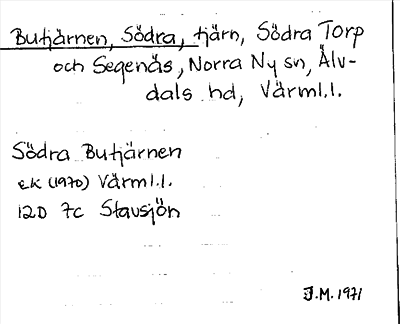 Butjärnen, Södra, tjärn, Södra Torp
och Segenäs, Norra Ny sn, Älv-
dals hd, Värml.l.
Södra Butjärnen
EK (1970) Värml.l.
12D 7c Stavsjön
J.M. 1971